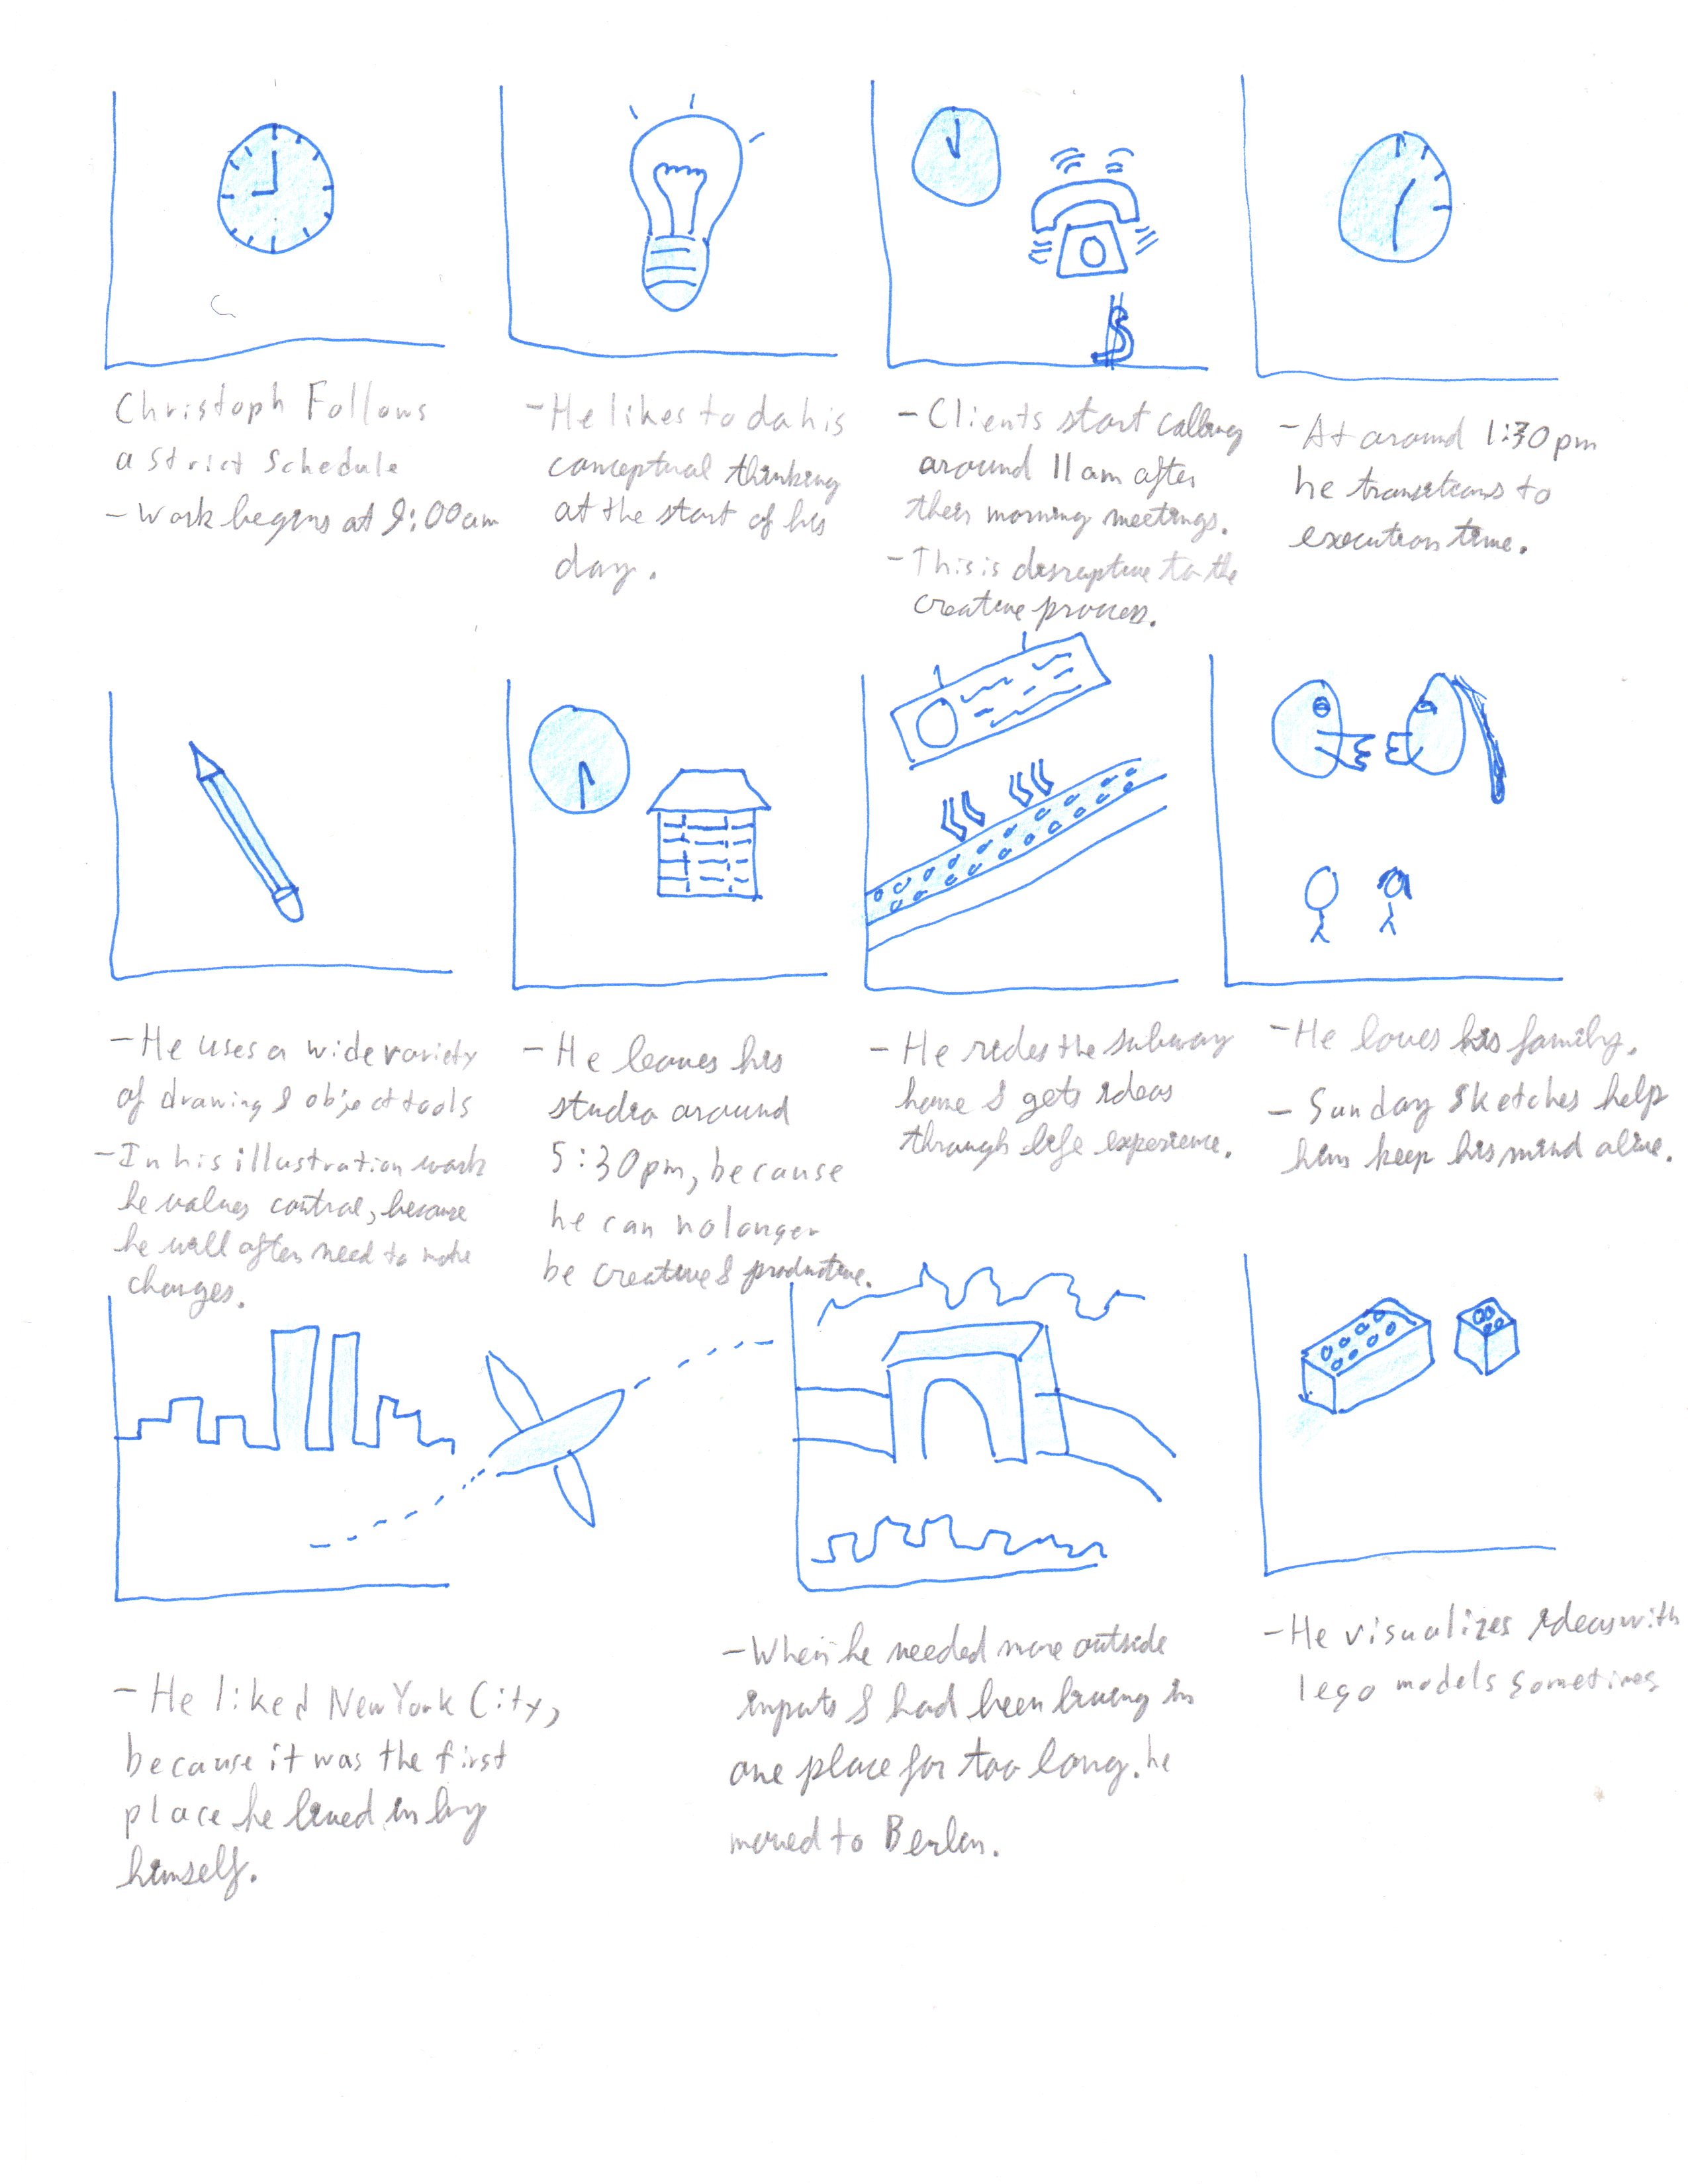 Christoph Follows
a Strict Schedule
- Work begins at 9:00am
- He likes to do his
conceptual thinking
at the start of his
day.
- Clients start calling
around 11am after
their morning meetings.
- This is disruptive to the
creative process.
$
- At around 1:30pm
he transitions to
execution time.
- He uses a wide variety
of drawing & object tools
- In his illustration work
he values control, because
he will often need to make
changes.
- He leaves his
studio around
5:30pm, because
he can no longer
be creative & productive.
- He rides the subway
home & gets ideas
through life experience.
- He loves his family.
- Sunday Sketches help
him keep his mind alive.
- He liked New York City,
because it was the first
place he lived in by
himself.
- When he needed more outside
inputs & had been living in
one place for too long. he
moved to Berlin.
- He visualizes ideas with
lego models sometimes